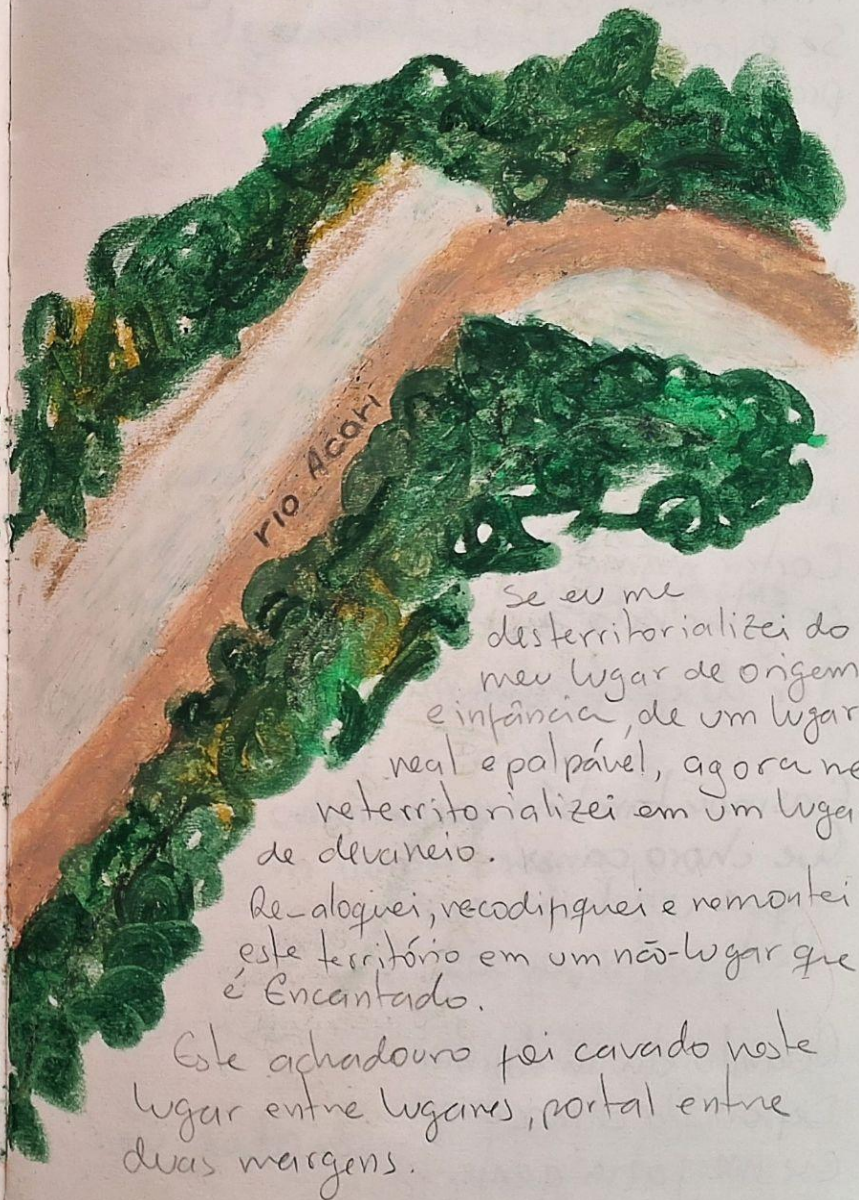 rio Acari
Se eu me
desterritorializei do
meu lugar de origem
e infância, de um lugar
real e palpável, agora me
reterritorializei em um luga
de devaneio.
Re-aloquei, recodifiquei e remontei
este território em um não-lugar que
é Encantado.
Este achadouro foi cavado neste
lugar entre lugares, portal entre
duas margens.